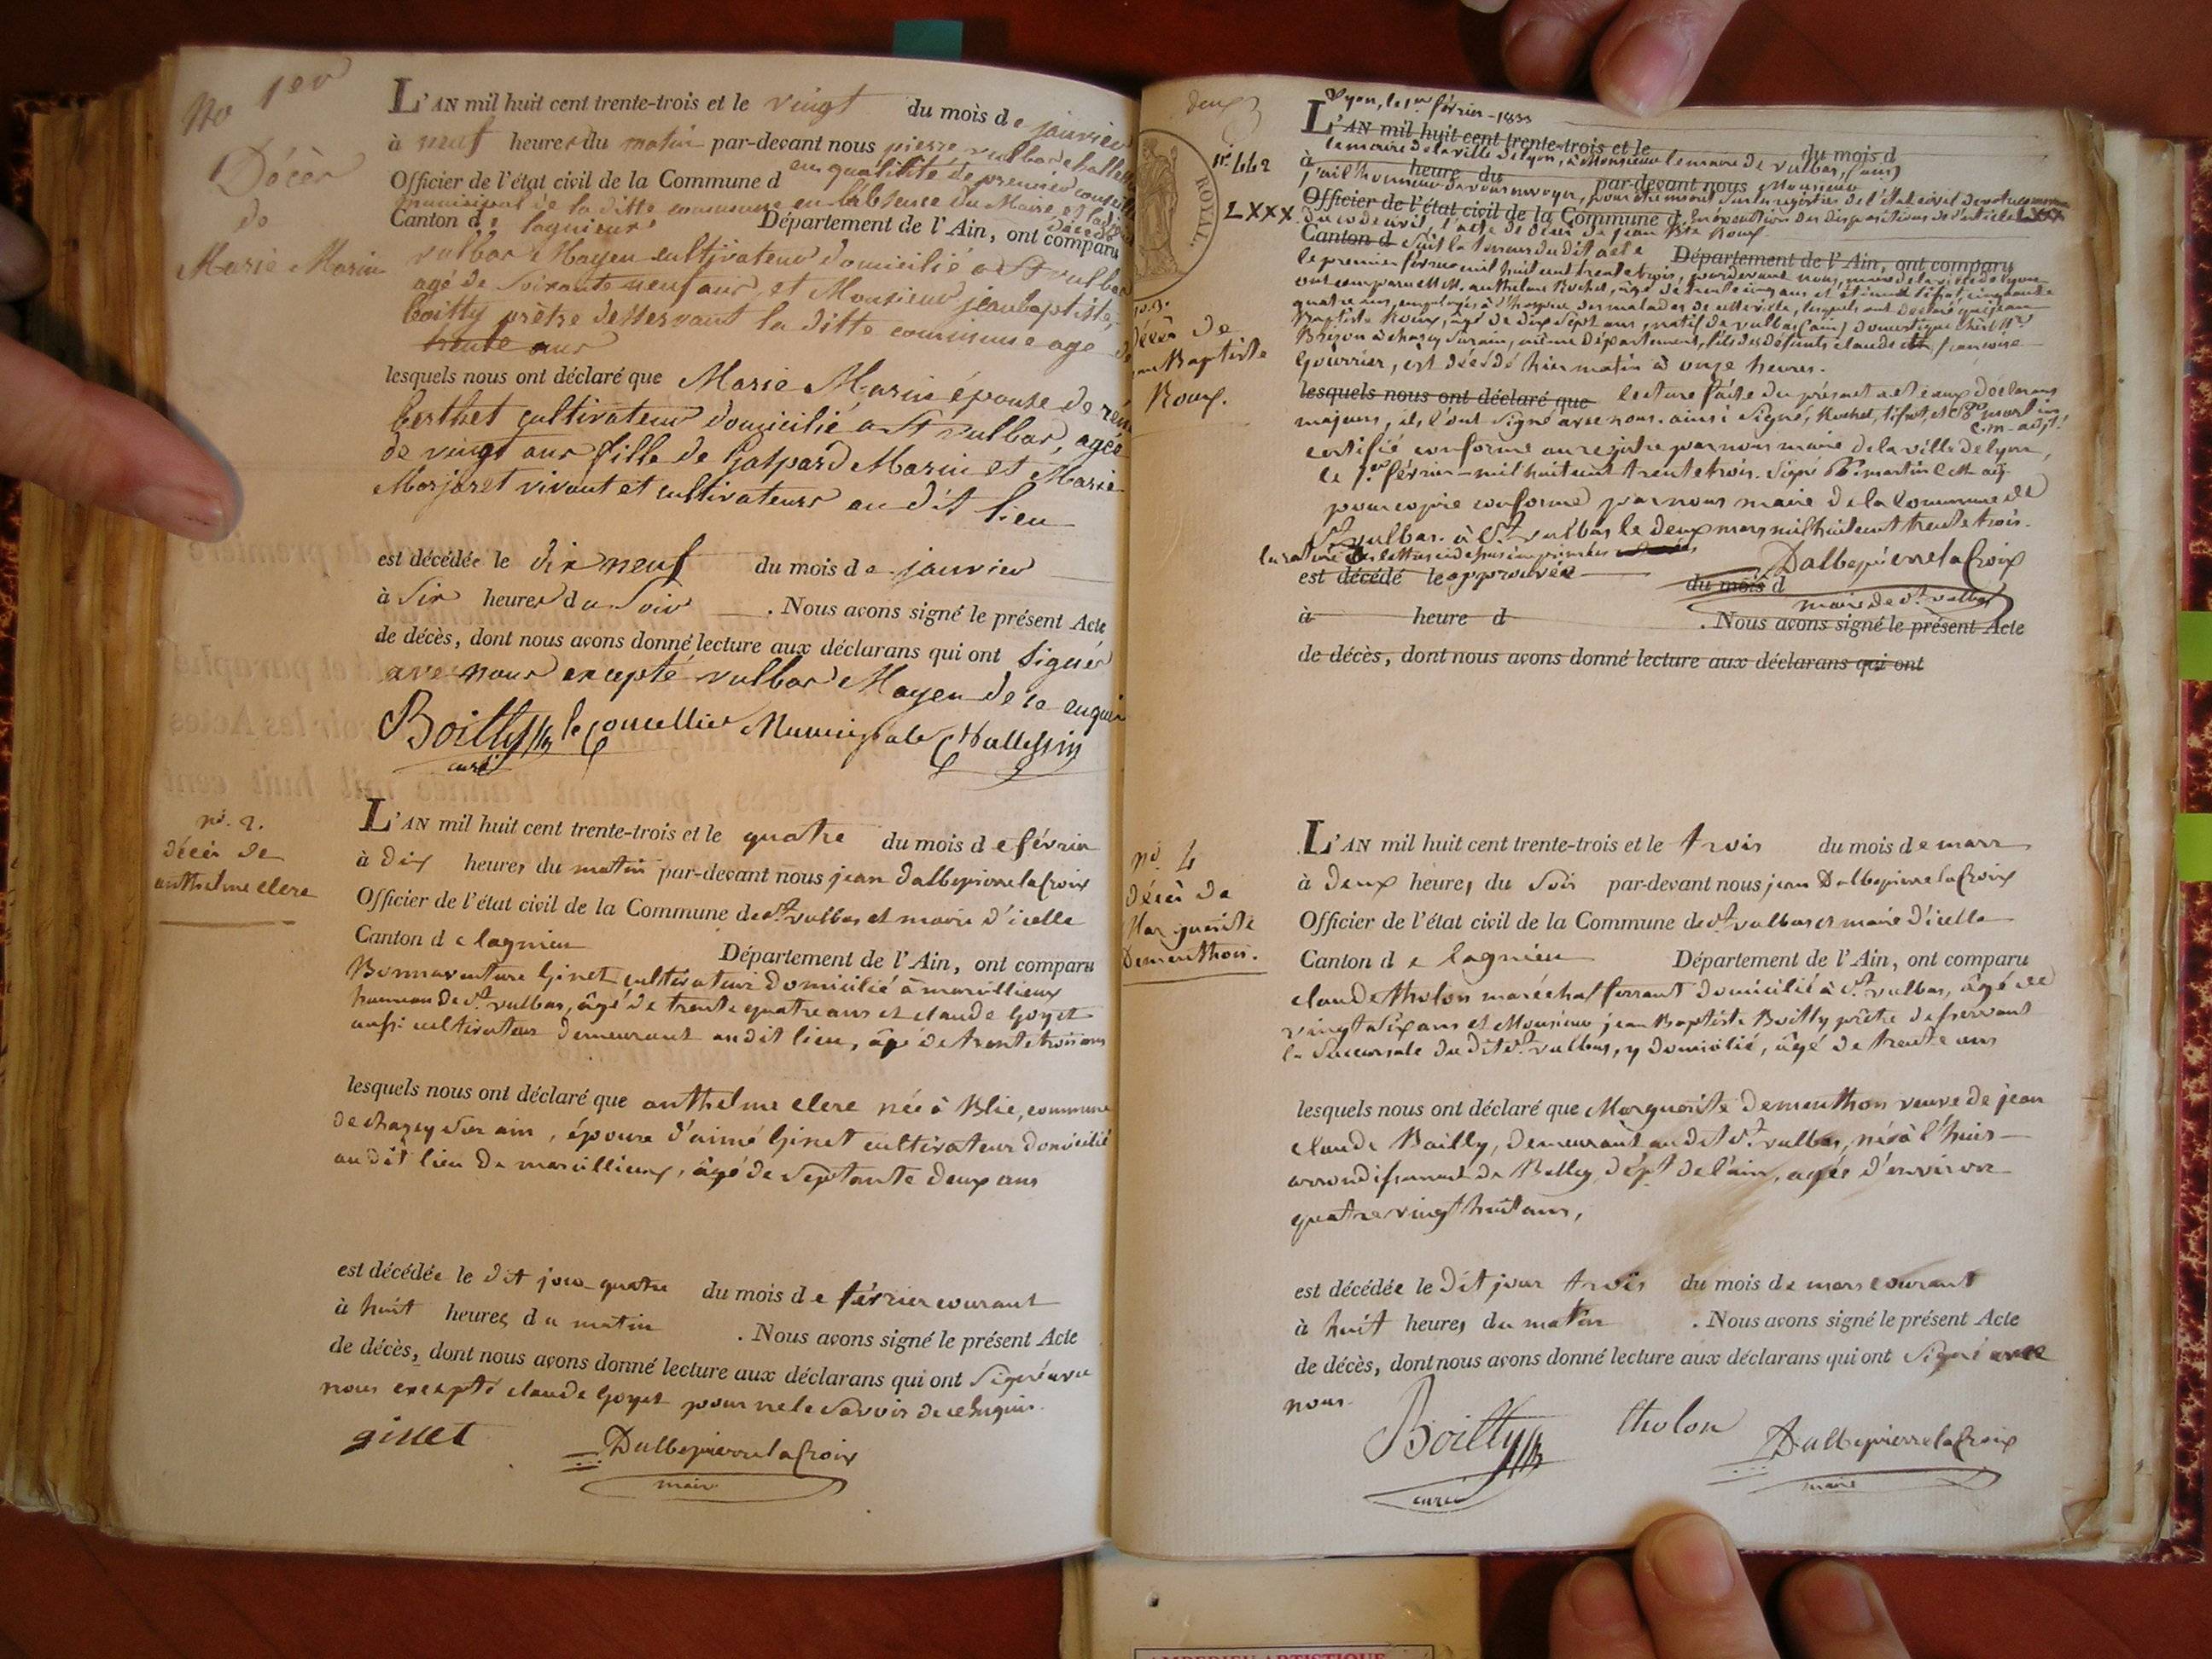 No 1er
Décès
de
Marie Marin
L'AN mil huit cent trente-trois et le vingt du mois de janvier
à neuf heures du matin par-devant nous pierre vulbas challe
Officier de l'état civil de la Commune d en qualitité de premier conseil
municipal de la ditte commune en l'absence du Maire et
Canton de lagnieux Département de l'Ain, ont comparu
vulbas Mayen cultivateur domicilié a St vulbas
agé de soixante neuf ans et Monsieur jean baptiste
boilly prètre déssérvant la ditte commune age de
trente ans
lesquels nous ont déclaré que Marie Marin épouse de
berthet cultivateur domicilié a St vulbas, agée
de vingt ans fille de Gaspard Marin et Marie
Marjaret vivant et cultivateurs au dit lieu
est décédée le dix neuf du mois de janvier
à Six heures du Soir . Nous avons signé le présent Acte
de décès, dont nous avons donné lecture aux déclarans qui ont signér
avec nous excepté vulbas Mayen de ce enqui
Boilly le Concellier Municipale Challessin
curé
no. 2.
décès de
anthelme clere
L'AN mil huit cent trente-trois et le quatre du mois de février
à dix heures du matin par-devant nous jean Dalbepierrelacroix
Officier de l'état civil de la Commune de St vulbas et maire d'icelle
Canton de lagnieu Département de l'Ain, ont comparu
Bonnaventure Ginet cultivateur domicilié à marcillieux
hameau de St vulbas, âgé de trente quatre ans et claude Goyet
aussi cultivateur demeurant au dit lieu, âgé de trente trois ans
lesquels nous ont déclaré que anthelme clere née à Blie, commune
de chazey sur ain, épouse d'aimé Ginet cultivateur domicilié
au dit lieu de marcillieux, âgé de septante deux ans
est décédée le dit jour quatre du mois de février courant
à huit heures du matin . Nous avons signé le présent Acte
de décès, dont nous avons donné lecture aux déclarans qui ont signé avec
nous excepté claude Goyet pour ne le savoir de ce enquis.
ginet Dalbepierrelacroix
maire
deux
ROYAL.
no. 3.
décès de
jean Baptiste
Roux.
Lyon, le 1er février 1833
L'AN mil huit cent trente-trois et le du mois d
le maire de la ville de lyon, à Monsieur le maire de vulbas, (ain)
à heure du par-devant nous Monsieur
no. 442
j'ai l'honneur de vous envoyer, pour être inscrit sur les registres de l'état civil de votre commune
Officier de l'état civil de la Commune d en exécution des dispositions de l'article LXXX
LXXX. du code civil, l'acte de décès de jean Bte Roux
Canton d suit la teneur du dit acte Département de l'Ain, ont comparu
le premier février mil huit cent trente trois, pardevant nous, maire de la ville de lyon
ont comparu MM. anthelme Rochet, âgé de trente cinq ans et étienne tifrat, cinquante
quatre ans, employés à l'hospice des malades de cette ville, lesquels ont déclaré que jean
Baptiste Roux, âgé de dix sept ans, natif de vulbas (ain) domestique chez Mr
Brison à chazey sur ain, même département, fils des défunts claude et françoise
Gourrier, est décédé hier matin à onze heures.
lesquels nous ont déclaré que lecture faite du présent acte aux déclarans
majeurs, ils l'ont signé avec nous. ainsi signé, Rochet, tifrat, et martin,
c.m. adjt.
certifié conforme au registre par nous maire de la ville de lyon,
le 1er février mil huit cent trente trois. signé martin
pour copie conforme par nous maire de la Commune de
St vulbas. à St vulbas le deux mars mil huit cent trente trois.
la rature des lettres ci dessus imprimées
est décédé le approuvée du mois d Dalbepierrelacroix
maire de St vulbas
à heure d . Nous avons signé le présent Acte
de décès, dont nous avons donné lecture aux déclarans qui ont
no. 4
Décès de
Marguerite
Dementhon.
L'AN mil huit cent trente-trois et le trois du mois de mars
à deux heures du soir par-devant nous jean Dalbepierrelacroix
Officier de l'état civil de la Commune de St vulbas et maire d'icelle
Canton de lagnieu Département de l'Ain, ont comparu
claude tholon maréchal ferrant domicilié à St vulbas, âgé de
vingt six ans et Monsieur jean Baptiste Boilly prêtre desservant
la succursale du dit St vulbas, y domicilié, âgé de trente ans
lesquels nous ont déclaré que Marguerite dementhon veuve de jean
claude Bailly, demeurant au dit St vulbas, née à l'huis
arrondissement de Belley dépt. de l'ain, agée d'environ
quatre vingt huit ans,
est décédée le dit jour trois du mois de mars courant
à huit heures du matin . Nous avons signé le présent Acte
de décès, dont nous avons donné lecture aux déclarans qui ont signé avec
nous.
Boilly tholon Dalbepierrelacroix
curé maire
AMBERIEU ARTISTIQUE